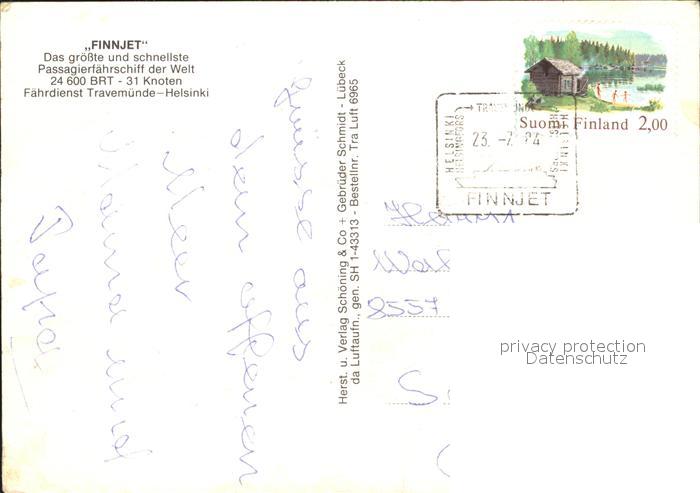 „FINNJET“
Das größte und schnellste
Passagierfährschiff der Welt
24 600 BRT - 31 Knoten
Fährdienst Travemünde–Helsinki
Grüsse aus
dem offenen
Meer
Mama und
Papa
Herst. u. Verlag Schöning & Co + Gebrüder Schmidt - Lübeck
da Luftaufn., gen. SH 1-43313 - Bestellnr. Tra Luft 6965
Suomi Finland 2,00
HELSINKI
HELSINGFORS
23. -7.
HELSINKI
FINNJET
8557
privacy protection
Datenschutz